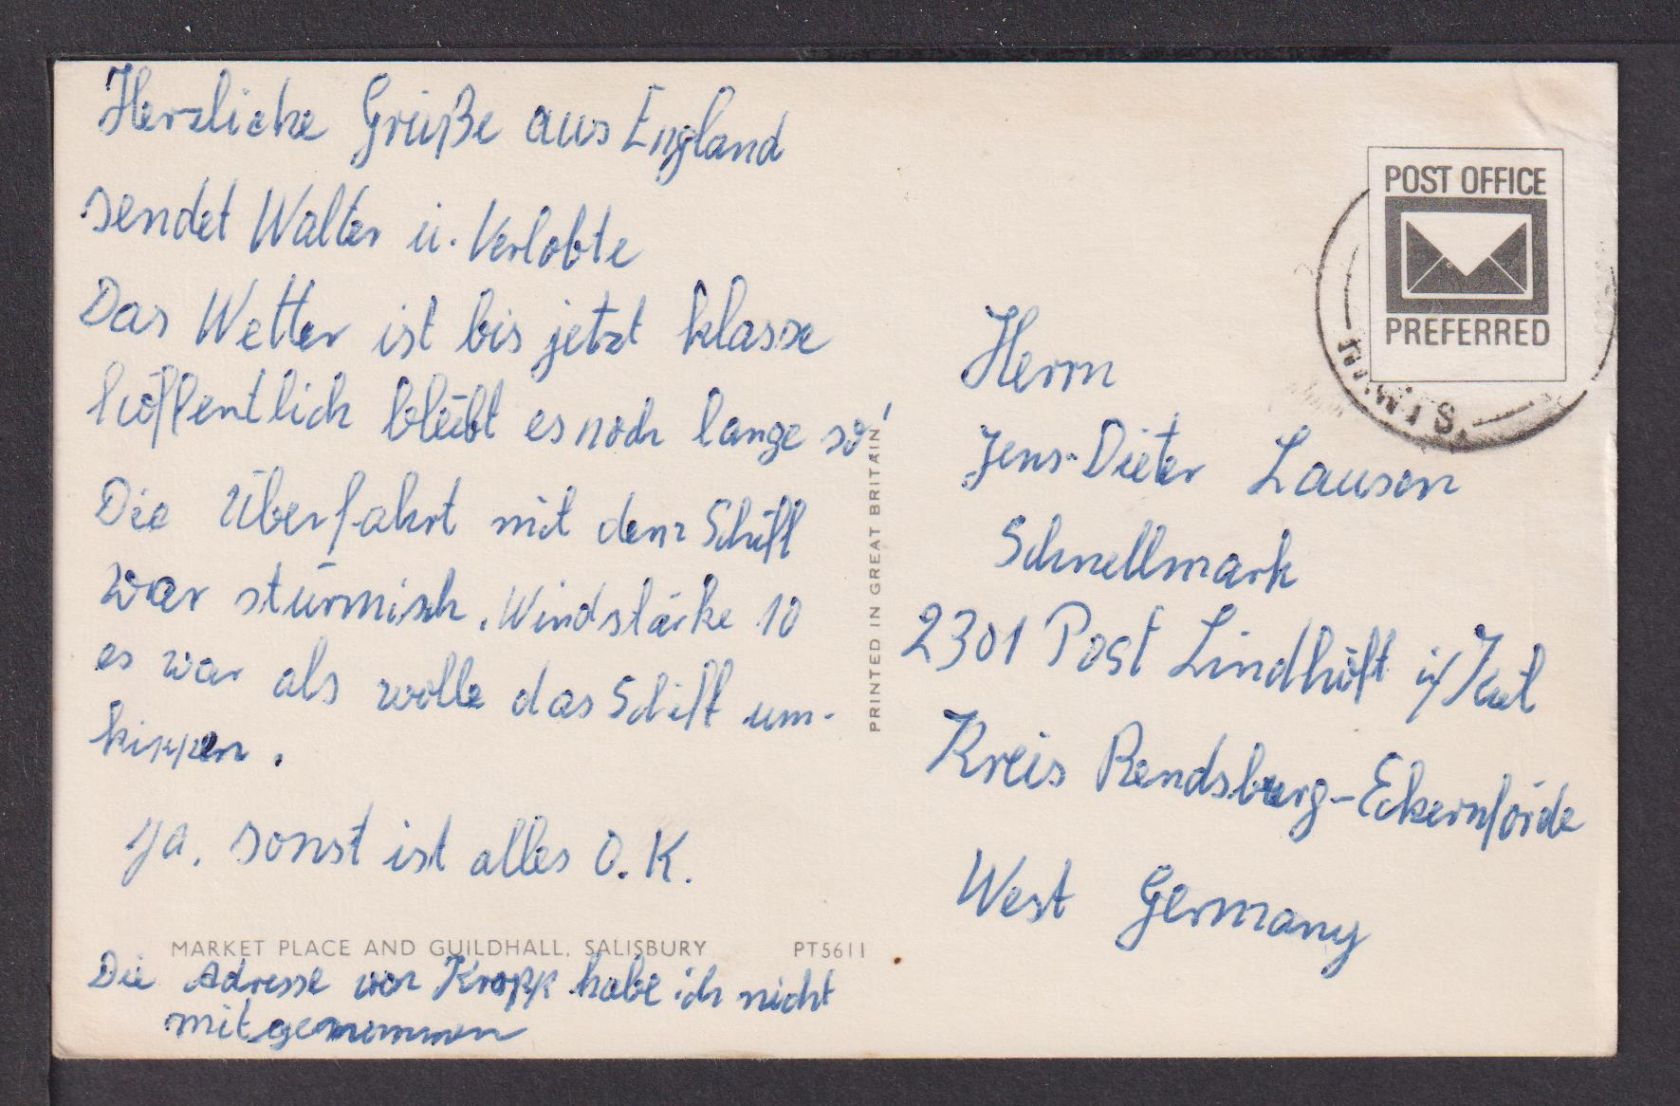 Herzliche Grüße aus England
sendet Walter u. Verlobte
Das Wetter ist bis jetzt klasse
hoffentlich bleibt es noch lange so!
Die Überfahrt mit dem Schiff
war stürmisch. Windstärke 10
es war als wolle das Schiff um-
kippen.
Ja, sonst ist alles O.K.
MARKET PLACE AND GUILDHALL, SALISBURY PT5611
Die Adresse von Kropp habe ich nicht
mitgenommen
PRINTED IN GREAT BRITAIN
POST OFFICE
PREFERRED
Herrn
Jens-Dieter Lausen
Schnellmark
2301 Post Lindhöft
Kreis Rendsburg-Eckernförde
West Germany